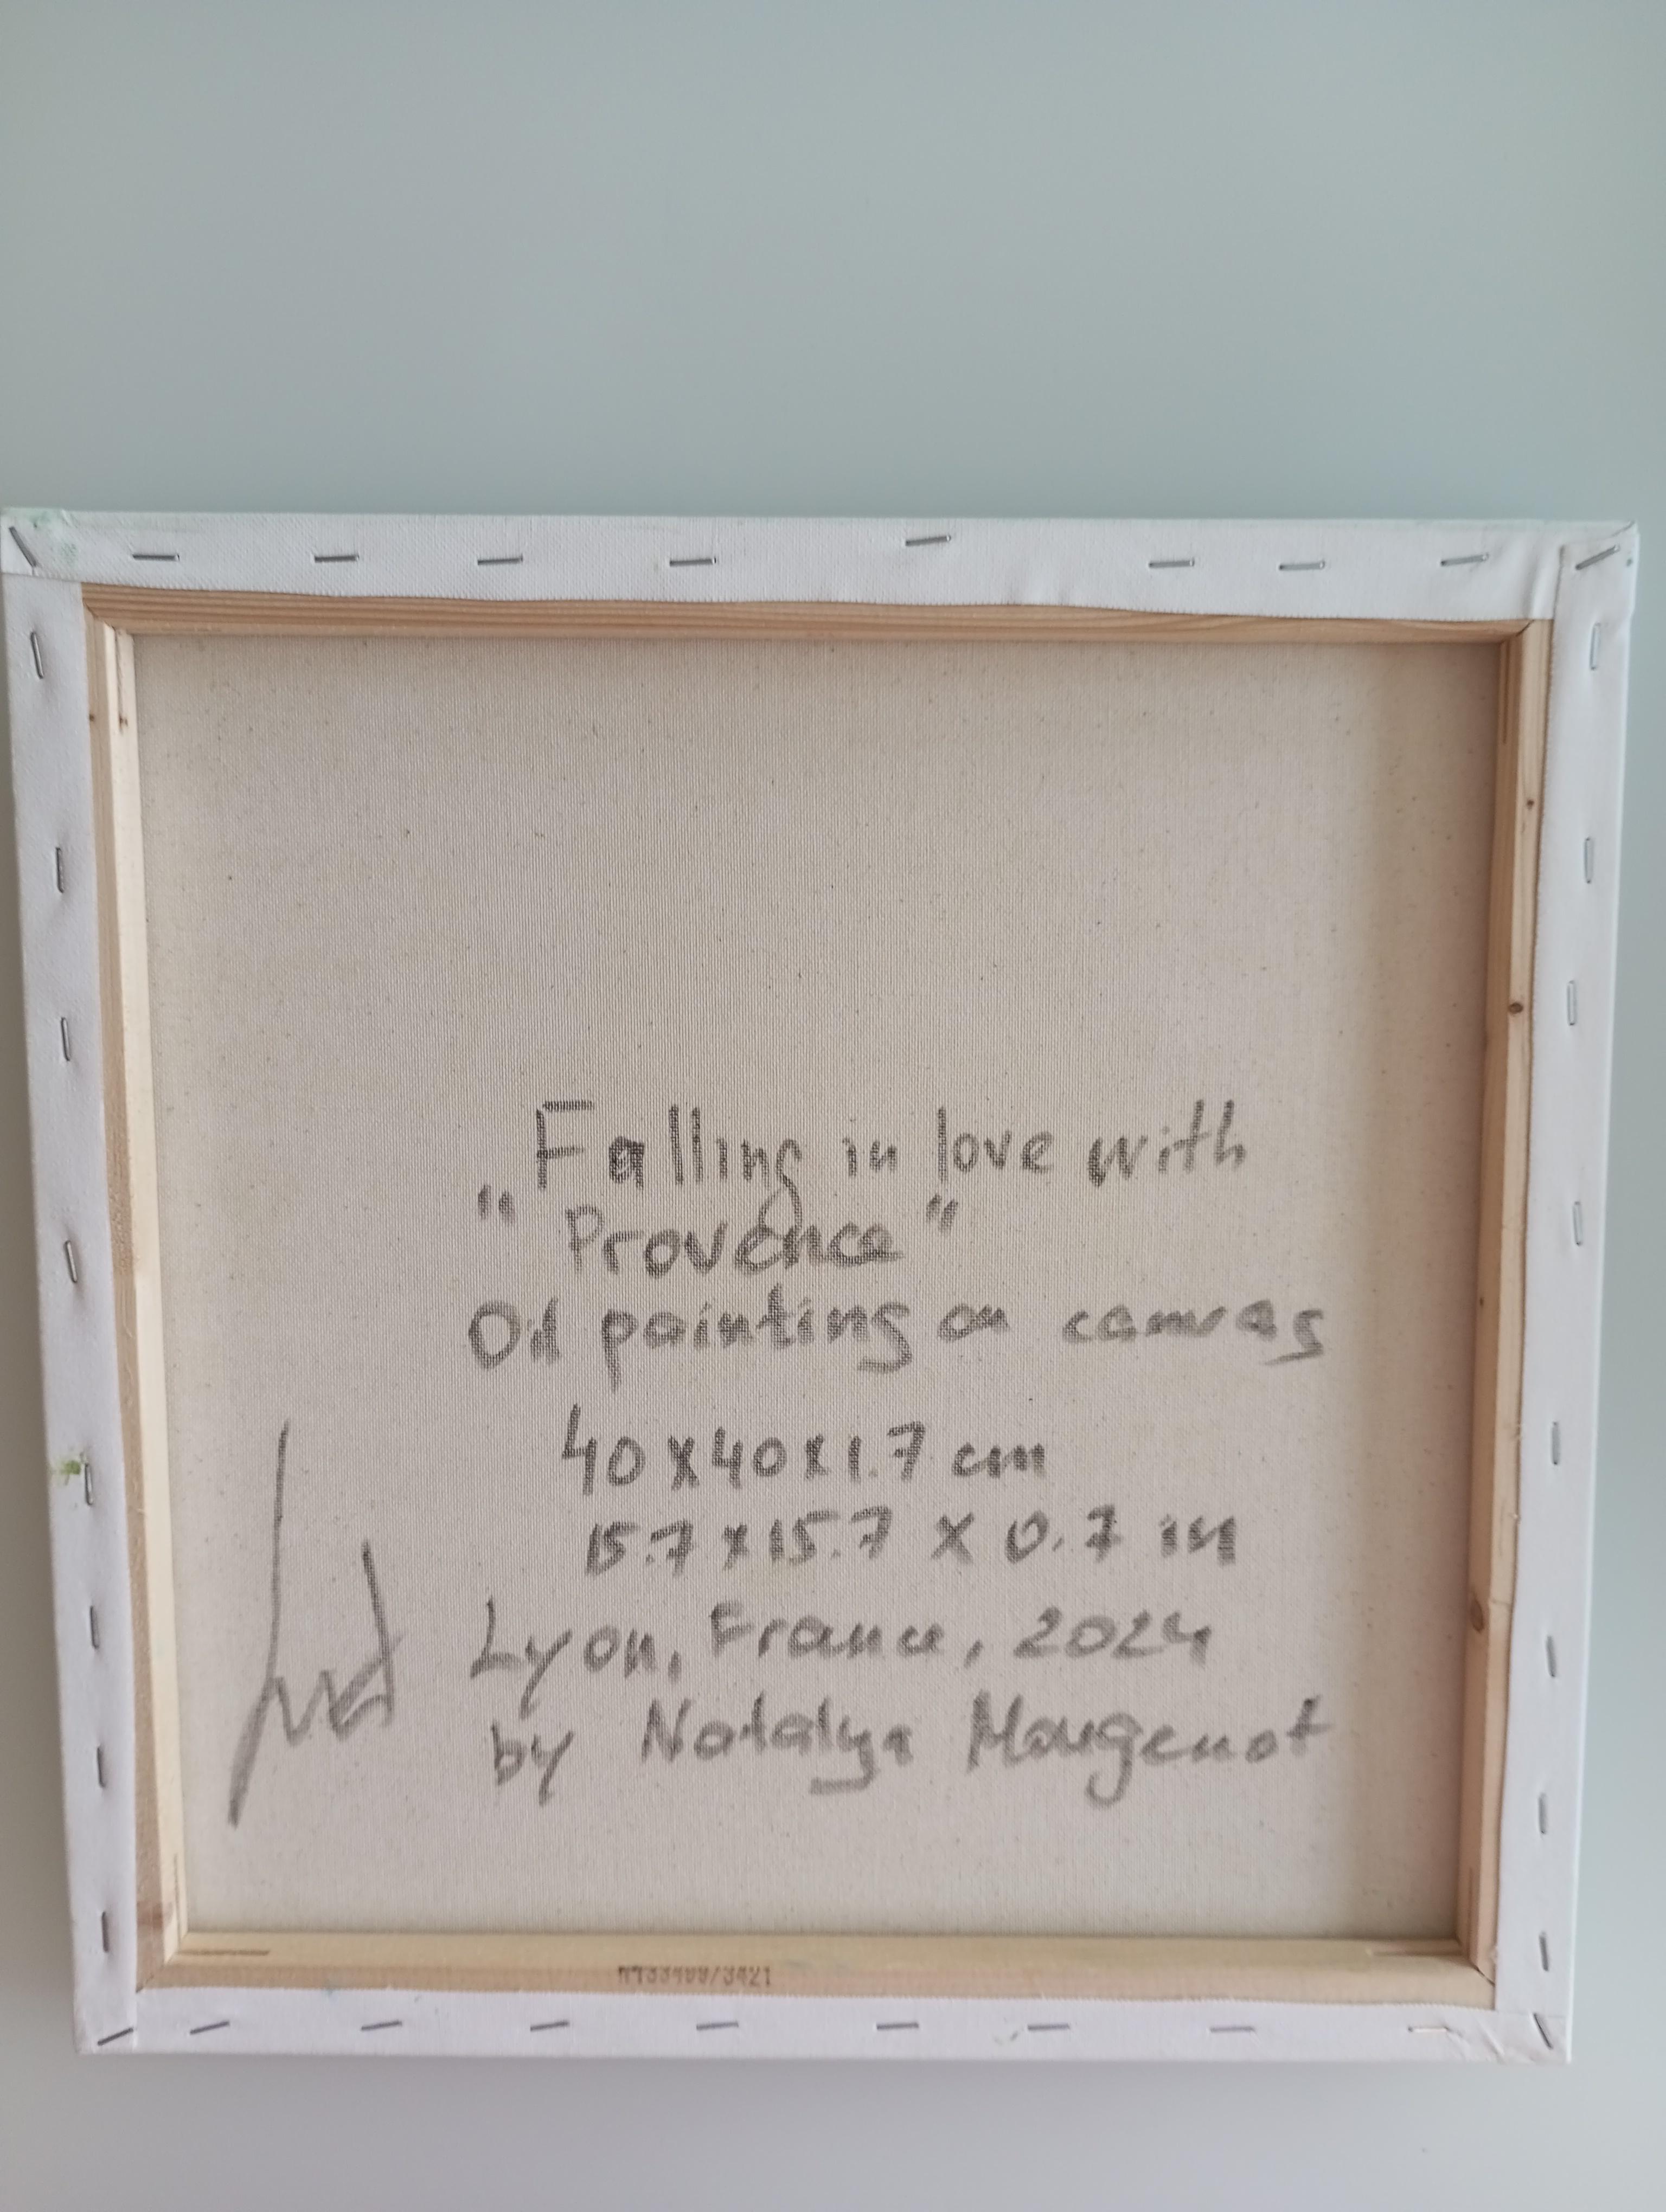 Falling in love with
" Provence "
Oil painting on canvas
40x40x1.7 cm
15.7x15.7 x 0.7 in
Lyon, France, 2024
by Natalya Mougenot